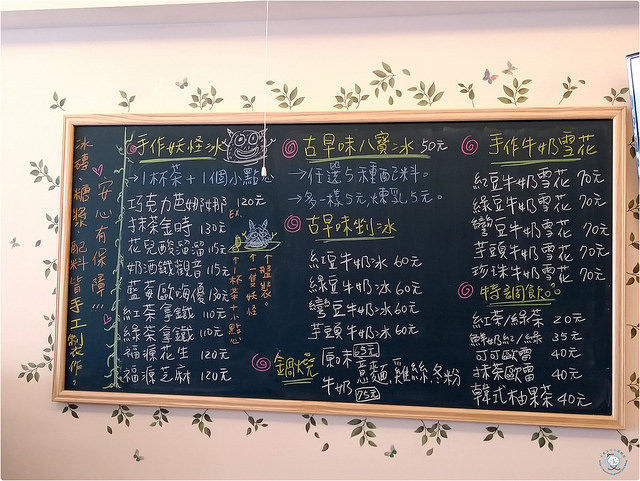 冰磚、糖漿、配料皆手工製作。
安心有保障!!!
手作妖怪冰
→1杯茶+1個小點心
巧克力芭娜娜 120元
抹茶金時 130元
花兒酸溜溜 115元
奶酒鐵觀音 115元
藍莓歐嗨優 130元
紅茶拿鐵 110元
綠茶拿鐵 110元
福源花生 120元
福源芝麻 120元
Ex.
↑1杯茶+小點心
↑1隻妖怪
↑盤裝。
古早味八寶冰 50元
→任選5種配料。
→多一樣5元,煉乳5元。
古早味剉冰
紅豆牛奶冰 60元
綠豆牛奶冰 60元
彎豆牛奶冰 60元
芋頭牛奶冰 60元
鍋燒
原味 65元
牛奶 75元
意麵、雞絲、冬粉
手作牛奶雪花
紅豆牛奶雪花 70元
綠豆牛奶雪花 70元
彎豆牛奶雪花 70元
芋頭牛奶雪花 70元
珍珠牛奶雪花 70元
特調飲。
紅茶/綠茶 20元
鮮奶紅/綠 35元
可可歐雷 40元
抹茶歐雷 40元
韓式柚果茶 40元